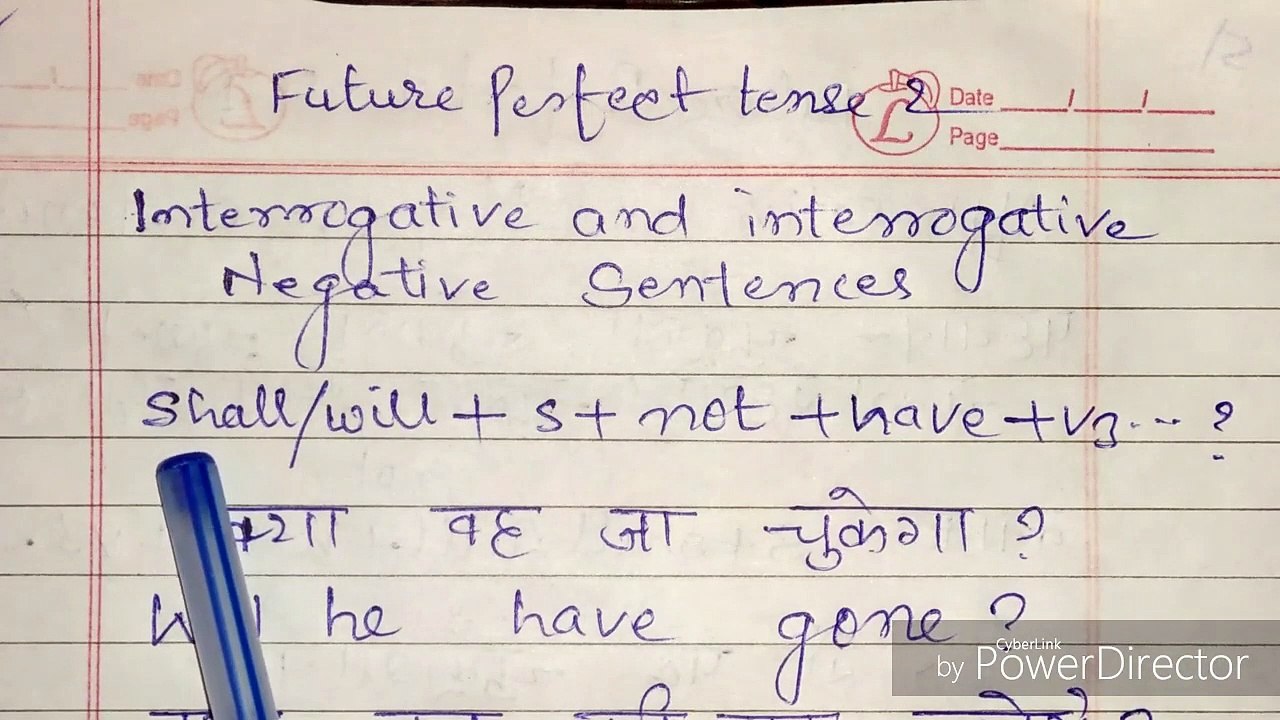 Future Perfect tense 2
Date ___/___/___
Page___
Interrogative and interrogative
Negative Sentences
Shall/will + s + not + have + v3 ... ?
क्या वह जा चुकेगा ?
he have gone ?
CyberLink
by PowerDirector